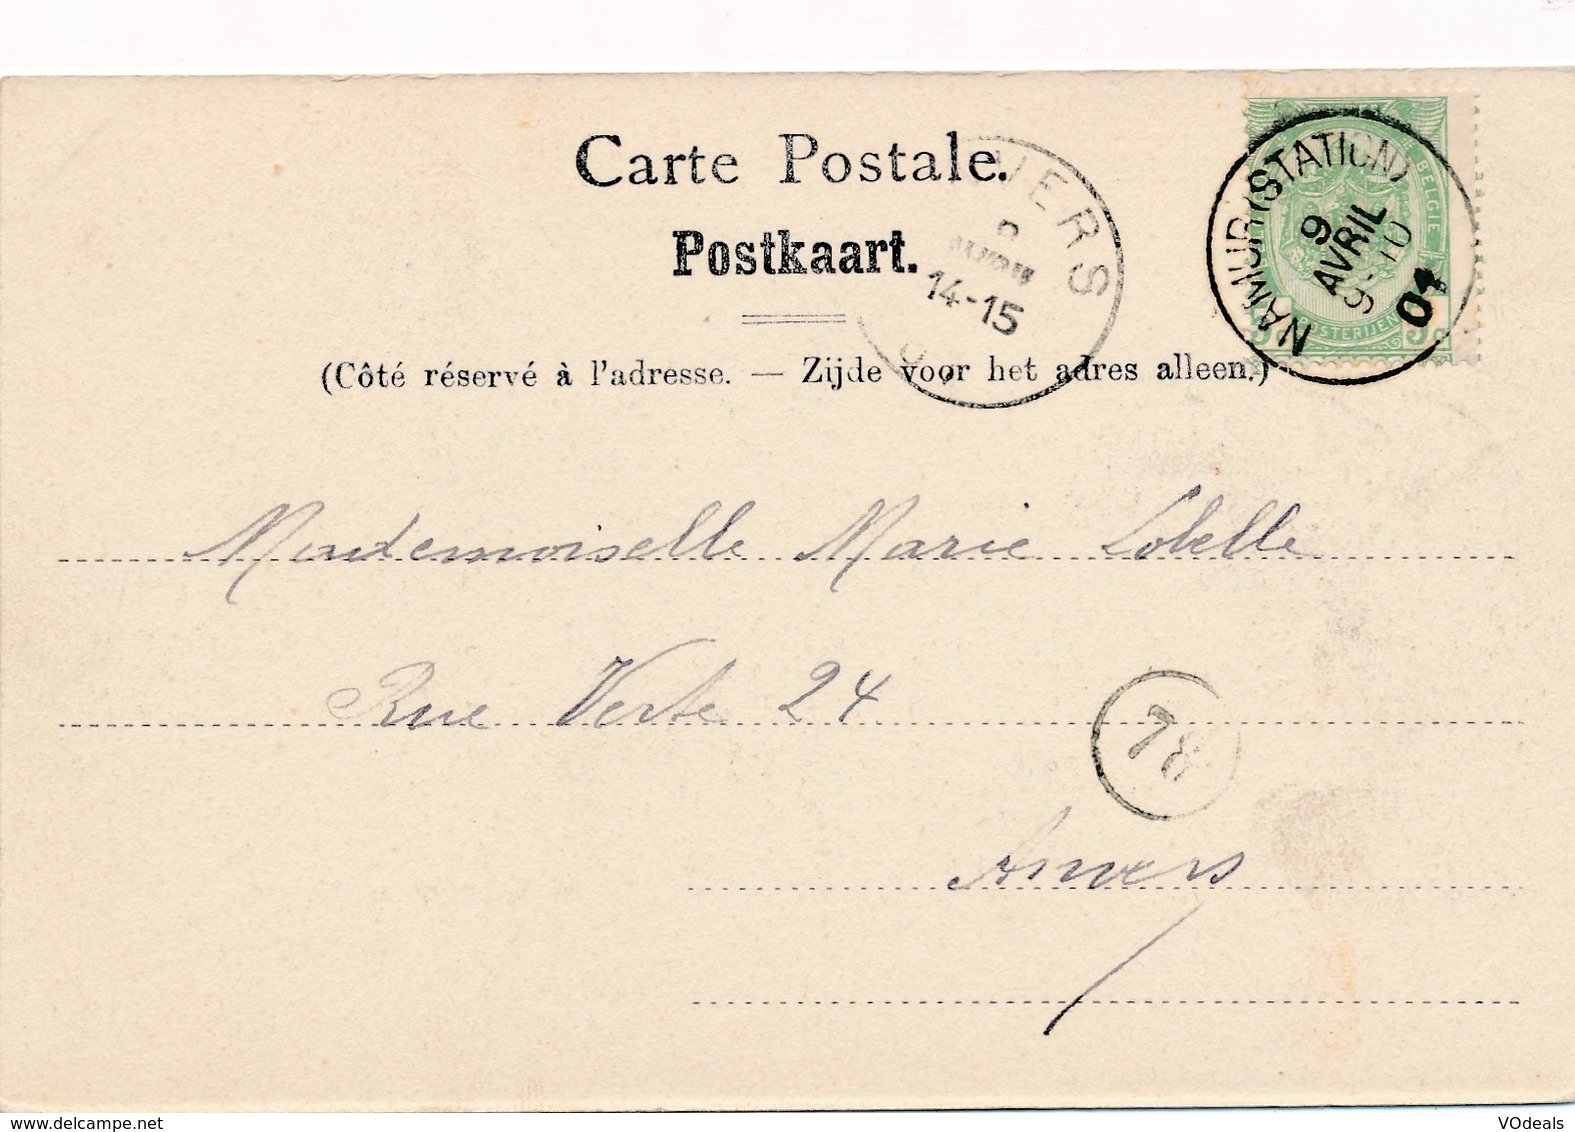 Carte Postale.
Postkaart.
(Côté réservé à l'adresse. — Zijde voor het adres alleen.)
VERS
14-15
NAMUR (STATION)
9
AVRIL
9-10
04
BELGIE
POSTERIJEN
Mademoiselle Marie Lobelle
Rue Verte 24
78
Anvers
VOdeals